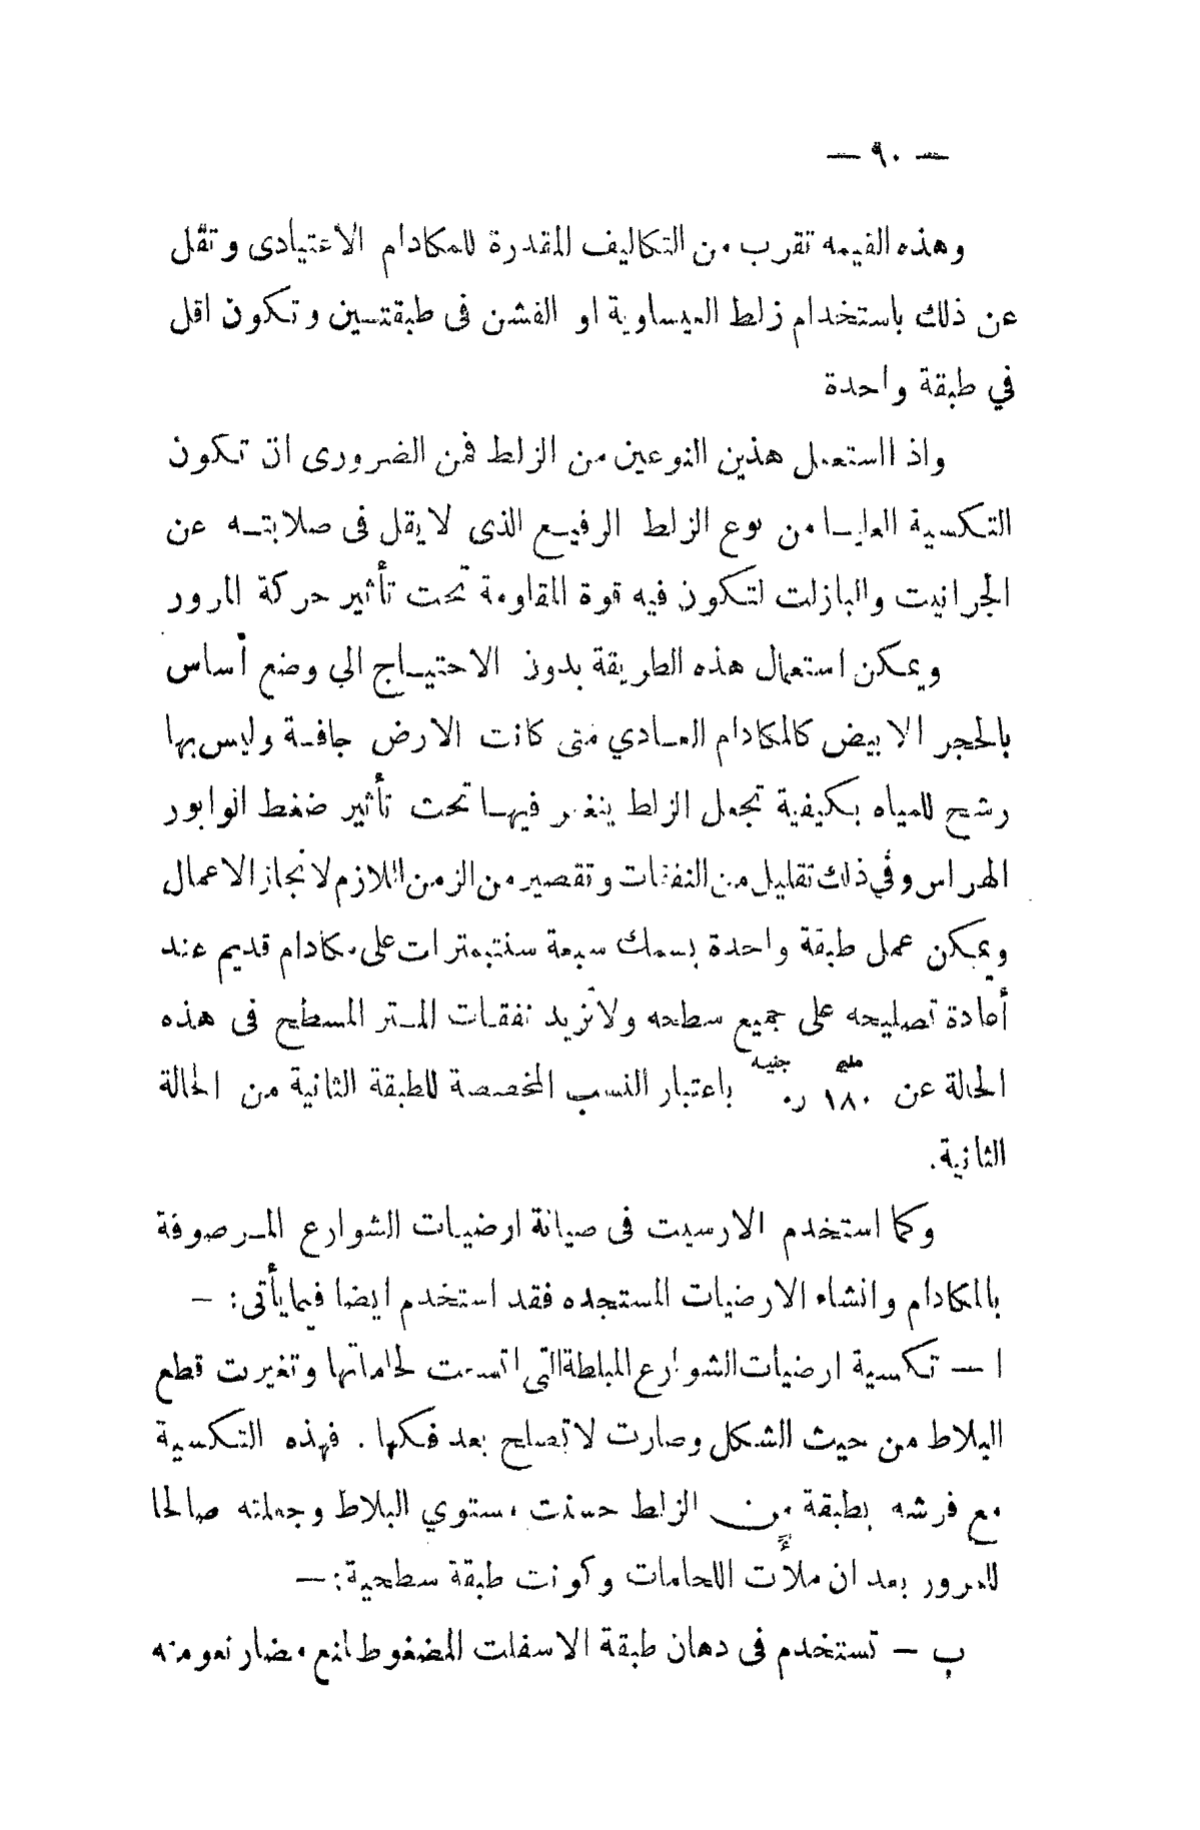 — ٩٠ —
وهذه القيمه تقرب من التكاليف المقدرة للمكادام الاعتيادى وتقل
عن ذلك باستخدام زلط العيساوية او الفشن فى طبقتـين وتكون اقل
في طبقة واحدة
واذ استعمل هذين النوعين من الزلط فمن الضرورى ان تكون
التكسية العليـا من نوع الزلط الرفيـع الذى لا يقل فى صلابتـه عن
الجرانيت والبازلت لتكون فيه قوة المقاومة تحت تأثير حركة المرور
ويمكن استعمال هذه الطريقة بدون الاحتيـاج الي وضع أساس
بالحجر الابيض كالمكادام العـادي متى كانت الارض جافـة وليس بها
رشح للمياه بكيفية تجعل الزلط ينغمر فيهـا تحت تأثير ضغط الوابور
الهراس وفي ذلك تقليل من النفقات وتقصير من الزمن اللازم لانجاز الاعمال
ويمكن عمل طبقة واحدة بسمك سبعة سنتيمترات على مكادام قديم عند
أعادة تصليحه على جميع سطحه ولا تزيد نفقـات المـتر المسطح فى هذه
مليم جنيـه
الحالة عن ١٨٠ ر٠ باعتبار النسب المخصصة للطبقة الثانية من الحالة
الثانية.
وكما استخدم الارسيت فى صيانة ارضيـات الشوارع المـرصوفة
بالمكادام وانشاء الارضيات المستجده فقد استخدم ايضا فيما يأتى: –
ا — تكسية ارضيات الشوارع المبلطة التى اتسعت لحاماتها وتغيرت قطع
البلاط من حيث الشكل وصارت لا تصلح بعد فكها . فهذه التكسية
مع فرشه بطبقة من الزلط حسنت مستوي البلاط وجعلته صالحا
للمرور بعد ان ملأت اللحامات وكونت طبقة سطحية: —
ب — تستخدم فى دهان طبقة الاسفلت المضغوط لمنع مضار نعومته